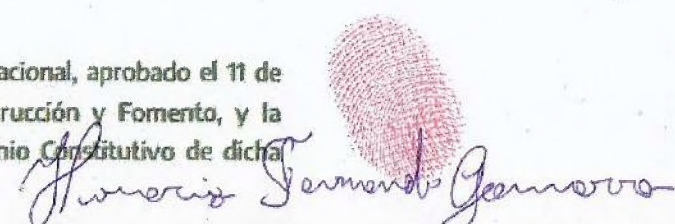 acional, aprobado el 11 de
rucción y Fomento, y la
nio Constitutivo de dicha
Honorio Fernando Gamarra